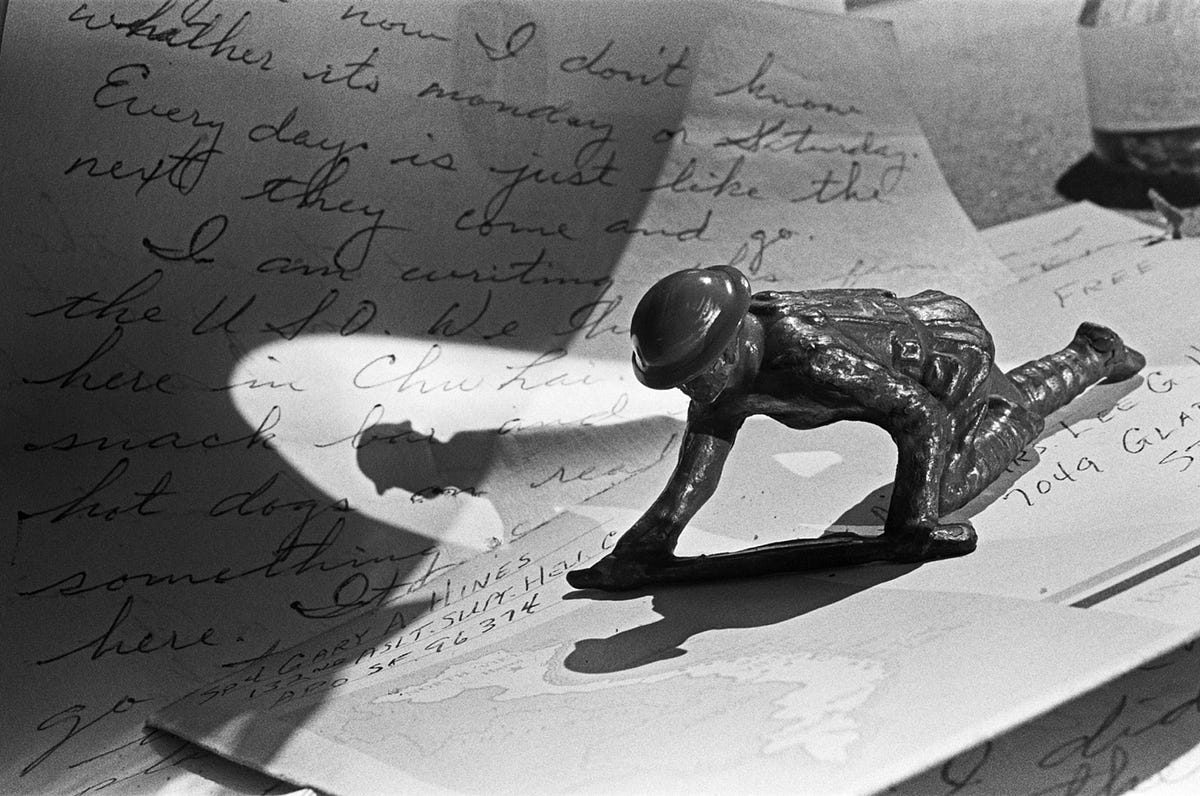 now I don't know
whather its monday or Saturday.
Every day is just like the
next they come and go.
I am writing this from
the USO. We
here in Chu Lai.
snack bar and
hot dogs an read
something
here. Its
go
SP4 GARY A. HINES
132ND ASLT. SUPT. HELI. C
APO SF. 96374
FREE
MRS. LEE G
7049 GLA
I
the